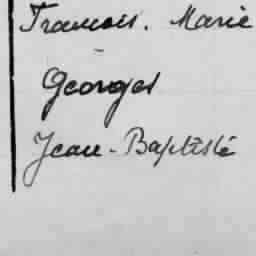 Francois. Marie
Georges
Jean-Baptiste